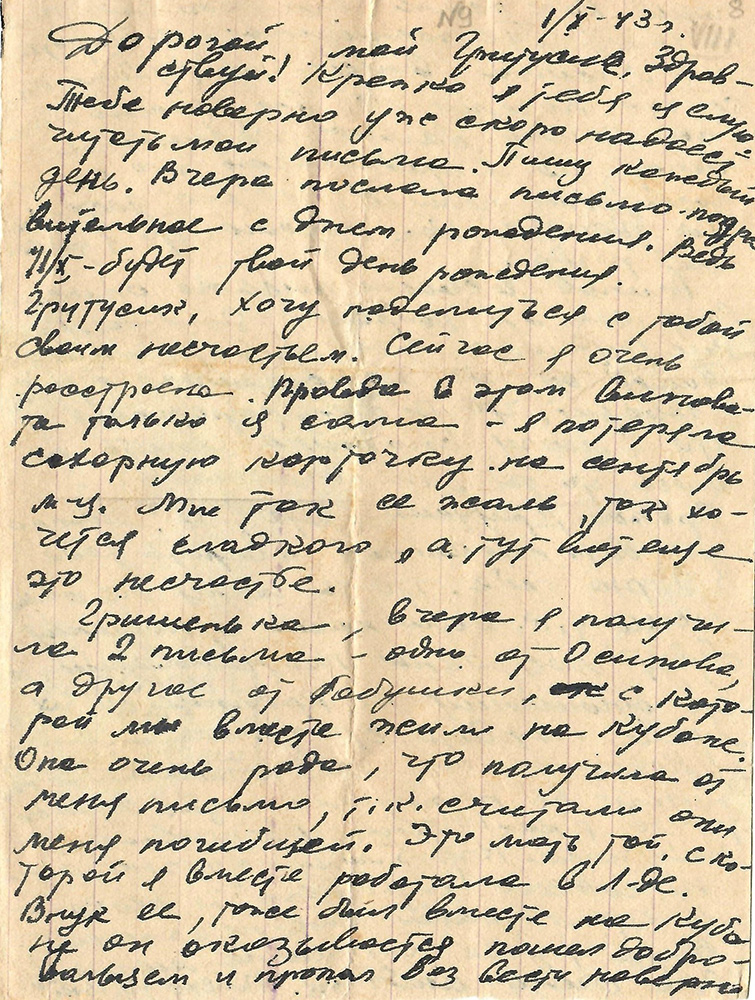 №9
8
1/X-43 г.
Дорогой мой Гритусик, Здрав-
ствуй! Крепко я тебя целую
Тебе наверно уже скоро надоест
читать мои письма. Пишу каждый
день. Вчера послала письмо поздра
вительное с днем рождения. Ведь
11/X-будет твой день рождения.
Гритусик, хочу поделиться с тобой
своим несчастьем. Сейчас я очень
расстроена. Правда в этом винова-
та только я сама - я потеряла
сахарную карточку на сентябрь
м-ц. Мне так ее жаль, так хо-
чется сладкого, а тут вот еще
это несчастье.
Гришенька, вчера я получи-
ла 2 письма - одно от Осипова,
а другое от бабушки, с кото-
рой мы вместе жили на Кубане.
Она очень рада, что получила от
меня письмо, т.к. считали они
меня погибшей. Это мать той, с ко-
торой я вместе работала в Л-де.
Внук ее, тоже был вместе на Куба
не он оказывается пошел добро-
вольцем и пропал без вести наверно